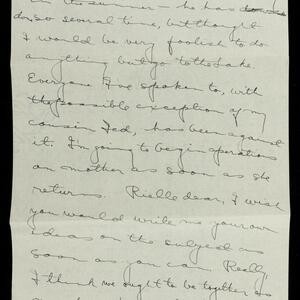 in the summer – he has
do, so several time, but thought
I would be very foolish to do
anything but go to the Lake.
Everyone I've spoken to, with
the possible exception of my
cousin Ted, has been against
it. I'm going to begin operations
on mother as soon as she
returns. Rielle dear, I wish
you would write me your own
ideas on the subject as
soon as you can. Really,
I think we ought to be together as